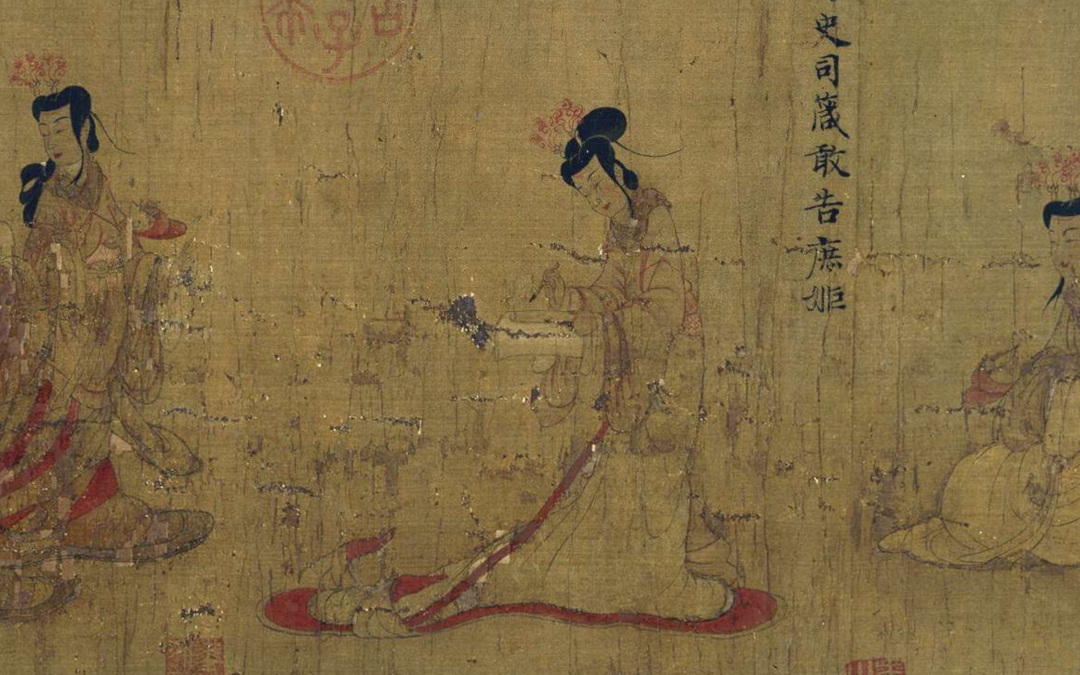 史司箴敢告庶姬